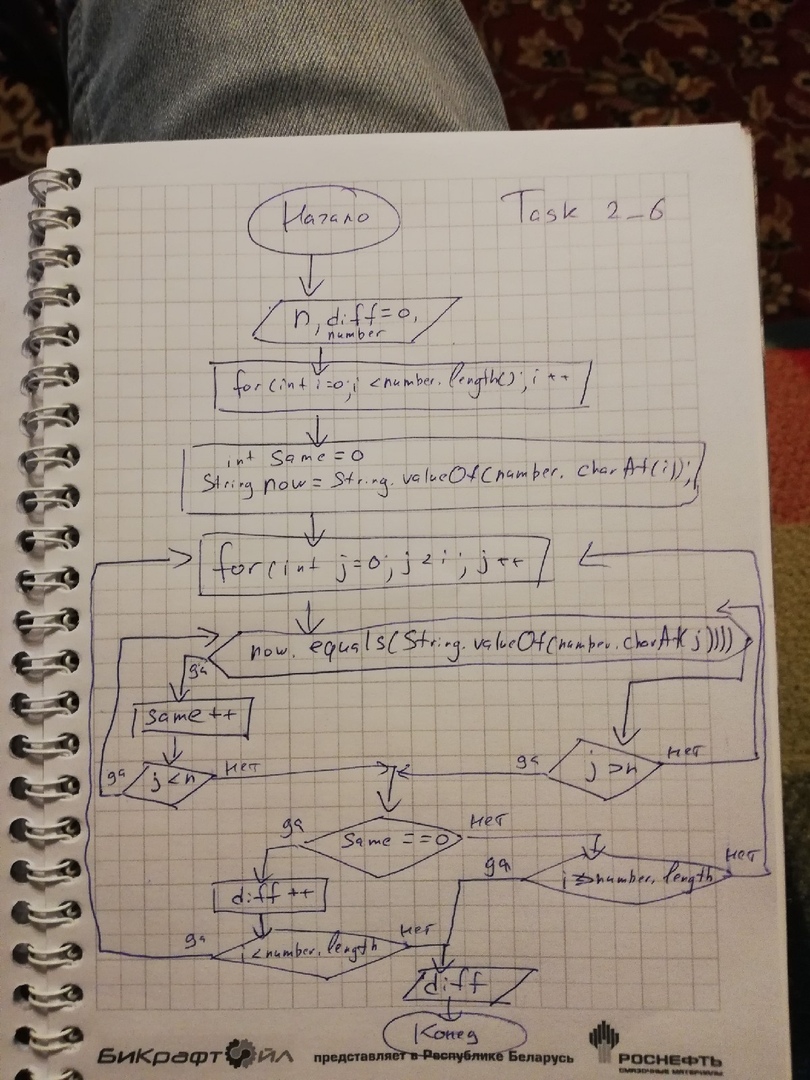 Начало
Task 2-6
n, diff=0,
number
for(int i=0; i <number.length(); i ++
int same =0
String now = String.valueOf(number.charAt(i));
for(int j=0; j<i; j++
now.equals(String.valueOf(number.charAt(j))))
да
same++
j<n
да
нет
j>n
да
нет
same ==0
да
нет
diff ++
i>number.length
да
нет
i<number.length
да
нет
diff
Конец
БиКрафтОйл представляет в Республике Беларусь РОСНЕФТЬ
СМАЗОЧНЫЕ МАТЕРИАЛЫ